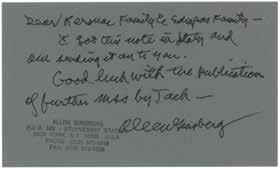 Dear Kerouac Family & Sampas Family —
I got this note in Italy and
am sending it on to you.
Good luck with the publication
of further mss by Jack —
Allen Ginsberg
ALLEN GINSBERG
P.O. BOX 582 - STUYVESANT STATION
NEW YORK, N.Y. 10009 U.S.A.